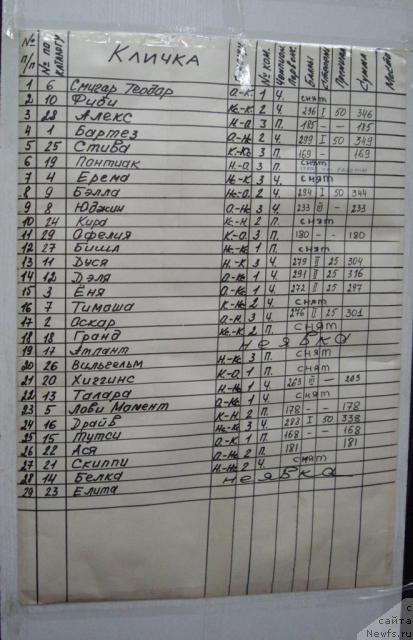 № п/п № по каталогу КЛИЧКА № ком. Чемпион. Первен. Баллы Степень Премиал. Сумма Место
1 6 Смигар Теодар О.-К. 1 Ч. снят
2 10 Фиби Ко.-К. 2 Ч. 296 I 50 346
3 28 Алекс Н.-О. 3 П. 185 — — 185
4 1 Бартез О.-Но. 2 Ч. 299 I 50 349
5 25 Стива К.-Ко. 3 П. 169 — 169
6 19 Понтиак Н.-О. 3 П. снят
7 4 Ерема Н.-К. 3 Ч. снят
8 9 Бэлла Но.-О. 2 Ч. 294 I 50 344
9 8 Юджин О.-Но. 3 Ч. 233 III — 233
10 24 Кира К.-Н. 2 П. снят
11 29 Офелия К.-О. 3 П. 180 — — 180
12 27 Бишл Н.-Ко. 1 П. снят
13 11 Дуся Н.-К. 3 Ч. 279 II 25 304
14 12 Дэля О.-Ко. 1 Ч. 291 II 25 316
15 3 Ёня О.-Ко. 1 Ч. 272 II 25 297
16 7 Тимаша К.-Но. 2 Ч. снят
17 2 Оскар О.-Н. 3 Ч. 276 II 25 301
18 18 Гранд Ко.-К. 2 П. снят
19 17 Атлант неявка
20 26 Вильгельм Н.-Ко. 3 П. снят
21 20 Хиггинс К.-О. 1 П. снят
22 13 Талара Н.-Но. 1 Ч. 203 III — 203
23 5 Лови Момент О.-Ко. 1 Ч. снят
24 16 Драйв К.-Н. 2 П. 178 — — 178
25 15 Тутси Но.-К. 3 Ч. 288 I 50 338
26 22 Ася О.-К. 1 П. 168 — — 168
27 21 Скиппи О.-Но. 2 П. 181 181
28 14 Белка Н.-Но. 2 Ч. снят
29 23 Елита неявка
с сайта Newfs.ru